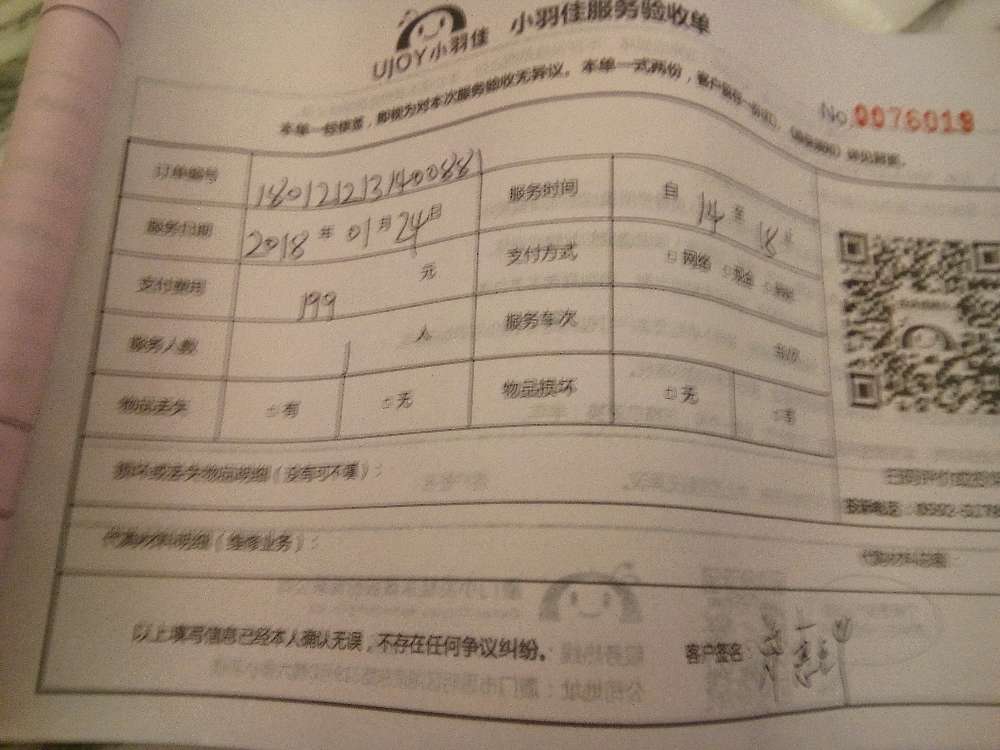 UJOY小羽佳 小羽佳服务验收单
本单一经签署，即视为对本次服务验收无异议。本单一式两份，客户留存一份
No.0076019
订单编号 180121213140088 服务时间 自 14 至 18
服务日期 2018年 01月24日 支付方式 网络 现金
支付费用 199 元
服务人数 1 人 服务车次 车次
物品丢失 有 无 物品损坏 无 有
损坏或丢失物品明细（没有可不填）：
扫码评价或投诉
投诉电话：0592-
代购材料明细（维修业务）： 代购材料总额：
以上填写信息已经本人确认无误，不存在任何争议纠纷。 客户签名：